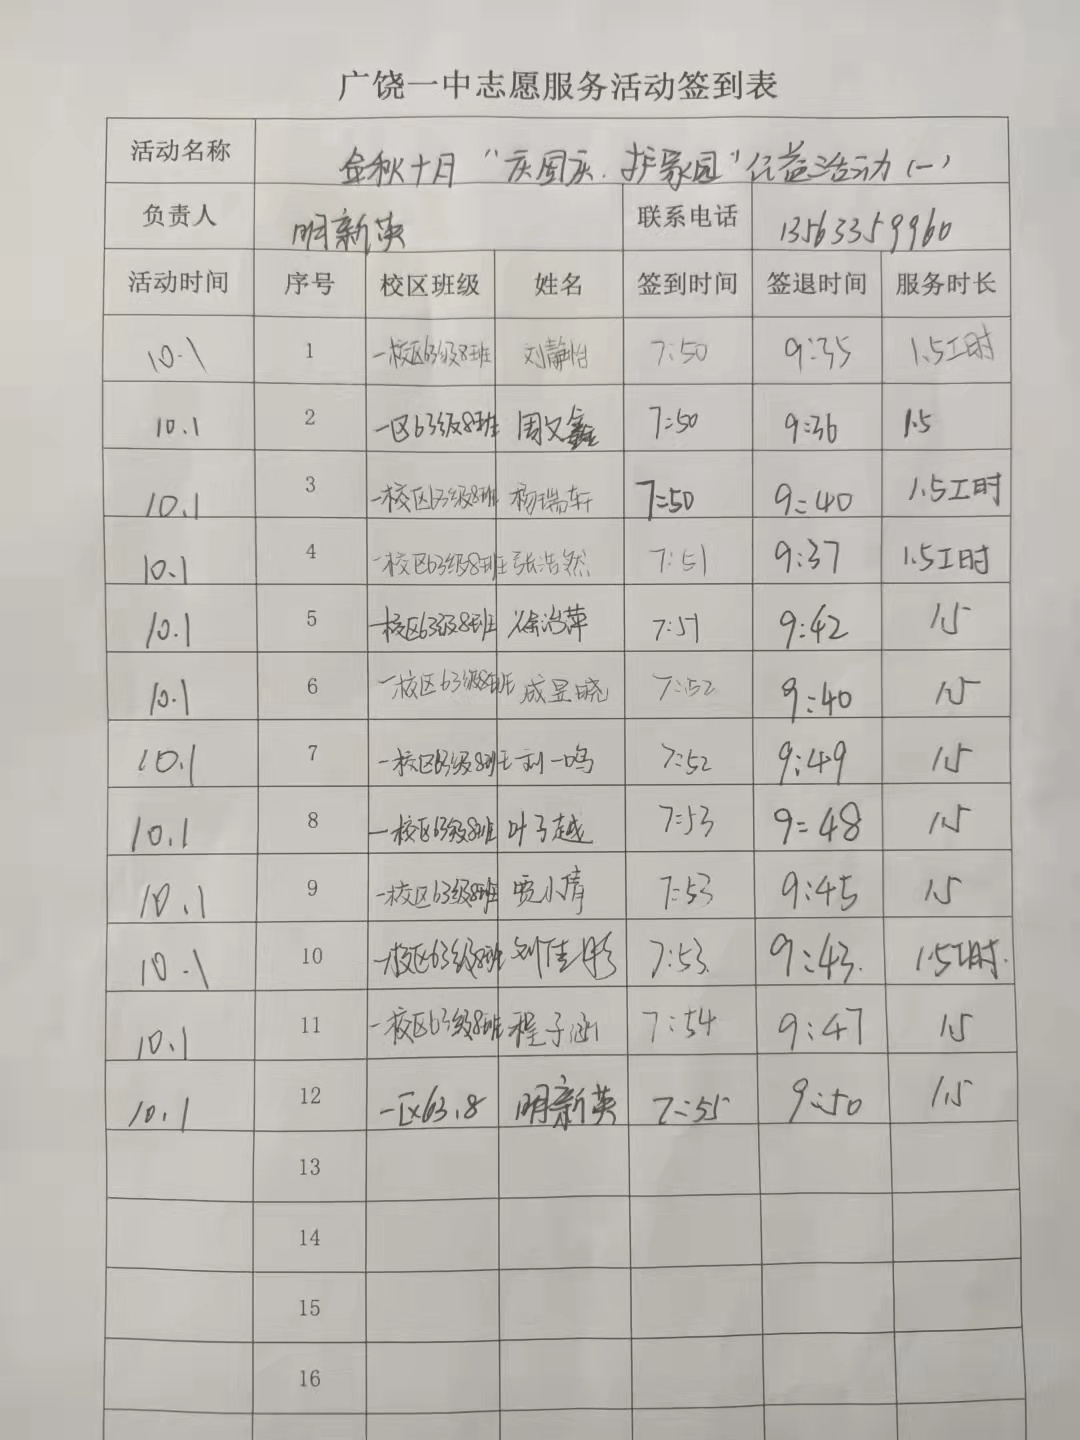 广饶一中志愿服务活动签到表
活动名称 金秋十月“庆国庆.护家园”公益活动(一)
负责人 明新英 联系电话 13563359960
活动时间 序号 校区班级 姓名 签到时间 签退时间 服务时长
10.1 1 一校区63级8班 刘静怡 7:50 9:35 1.5工时
10.1 2 一区63级8班 周文鑫 7:50 9:36 1.5
10.1 3 一校区63级8班 杨瑞轩 7:50 9:40 1.5工时
10.1 4 一校区63级8班 张浩然 7:51 9:37 1.5工时
10.1 5 一校区63级8班 徐治萍 7:51 9:42 1.5
10.1 6 一校区63级8班 成昱晓 7:52 9:40 1.5
10.1 7 一校区63级8班 刘一鸣 7:52 9:49 1.5
10.1 8 一校区63级8班 叶子越 7:53 9:48 1.5
10.1 9 一校区63级8班 小倩 7:53 9:45 1.5
10.1 10 一校区63级8班 刘佳彤 7:53. 9:43. 1.5工时.
10.1 11 一校区63级8班 程子涵 7:54 9:47 1.5
10.1 12 一区63.8 明新英 7:55 9:50 1.5
13
14
15
16